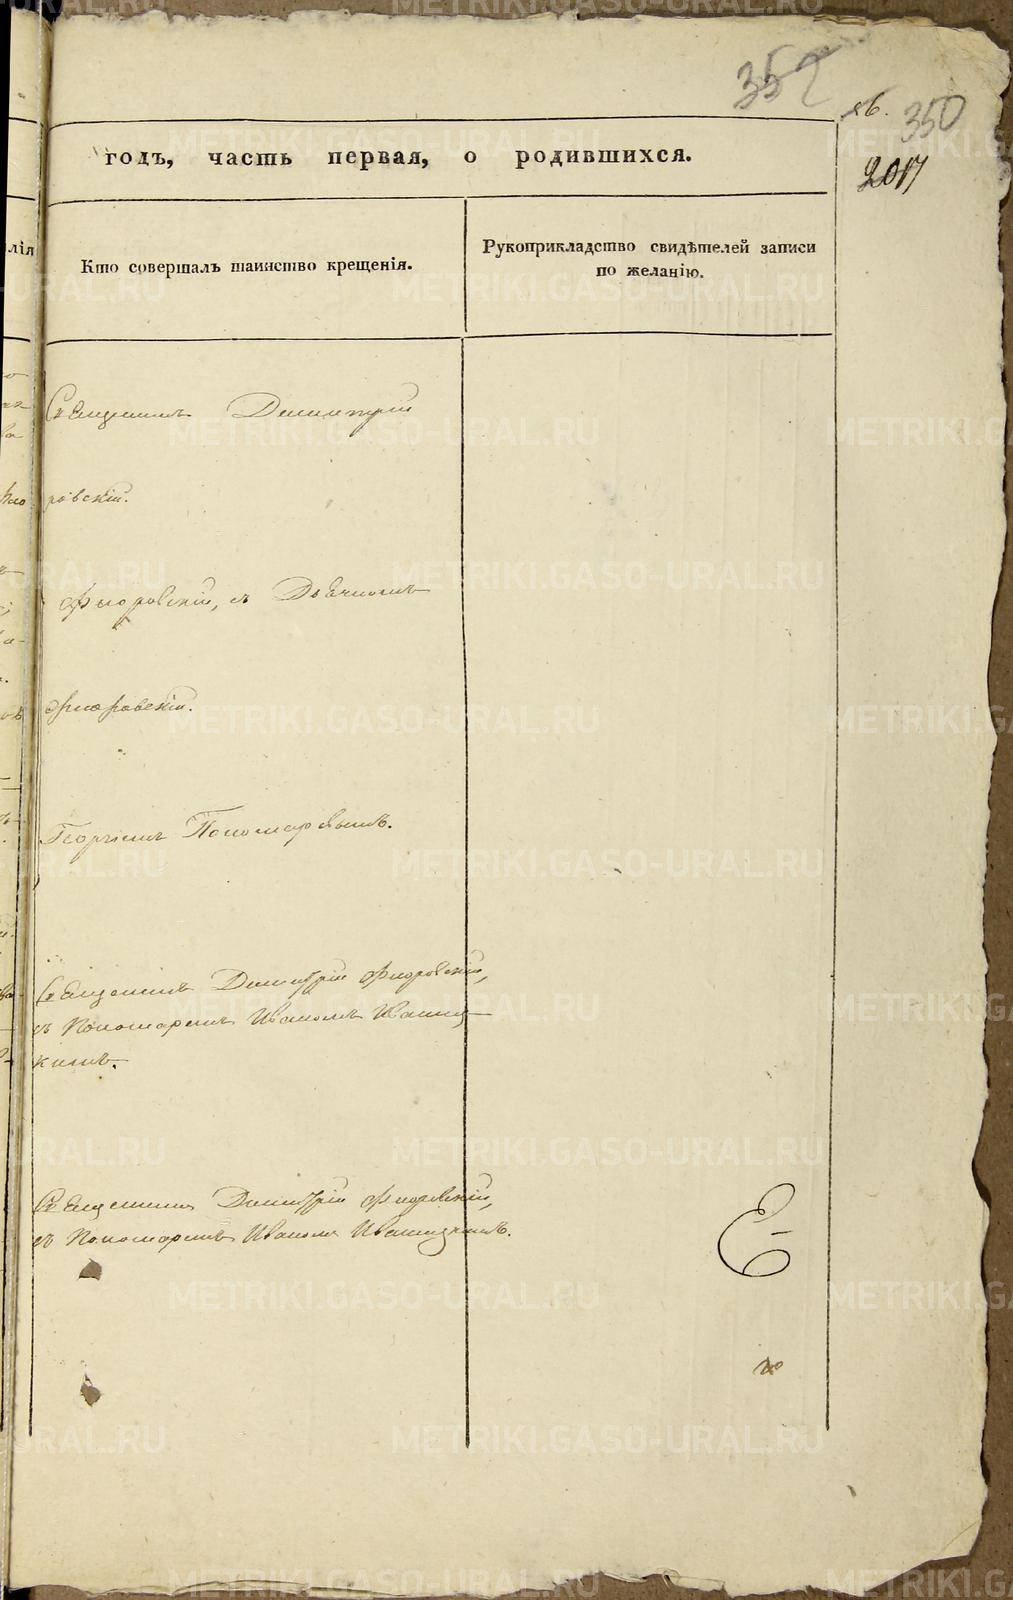 352
350
годъ, часть первая, о родившихся.
лія
Кто совершалъ таинство крещенія.
Рукоприкладство свидѣтелей записи
по желанію.
Священникъ Димитрій
ровскій.
Флоровскій, съ Дьячкомъ
Флоровскій.
Георгіемъ Пономаревымъ.
Священникъ Димитрій Флоровскій,
съ Пономаремъ Иваномъ
кимъ.
Священникъ Димитрій Флоровскій,
съ Пономаремъ Иваномъ
METRIKI.GASO-URAL.RU